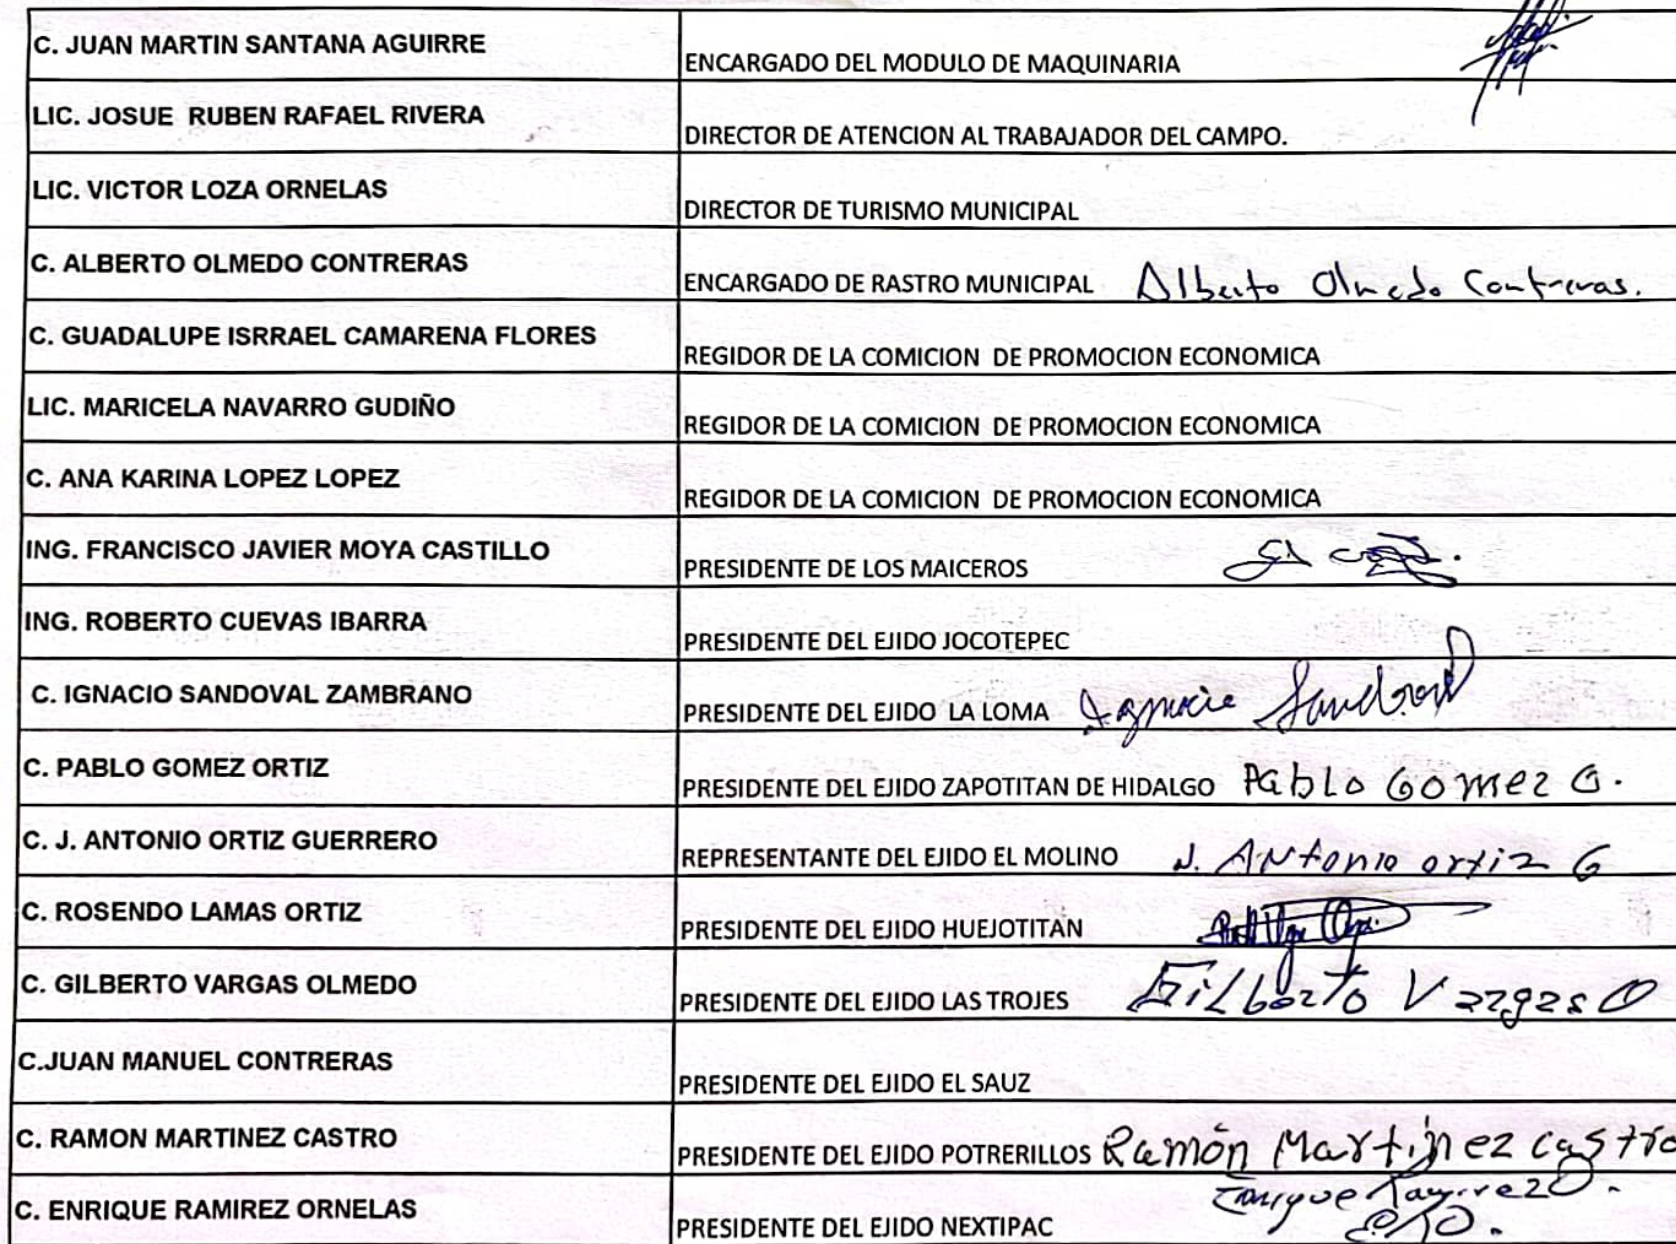 C. JUAN MARTIN SANTANA AGUIRRE
ENCARGADO DEL MODULO DE MAQUINARIA
LIC. JOSUE RUBEN RAFAEL RIVERA
DIRECTOR DE ATENCION AL TRABAJADOR DEL CAMPO.
LIC. VICTOR LOZA ORNELAS
DIRECTOR DE TURISMO MUNICIPAL
C. ALBERTO OLMEDO CONTRERAS
ENCARGADO DE RASTRO MUNICIPAL Alberto Olmedo Contreras.
C. GUADALUPE ISRRAEL CAMARENA FLORES
REGIDOR DE LA COMICION DE PROMOCION ECONOMICA
LIC. MARICELA NAVARRO GUDIÑO
REGIDOR DE LA COMICION DE PROMOCION ECONOMICA
C. ANA KARINA LOPEZ LOPEZ
REGIDOR DE LA COMICION DE PROMOCION ECONOMICA
ING. FRANCISCO JAVIER MOYA CASTILLO
PRESIDENTE DE LOS MAICEROS
ING. ROBERTO CUEVAS IBARRA
PRESIDENTE DEL EJIDO JOCOTEPEC
C. IGNACIO SANDOVAL ZAMBRANO
PRESIDENTE DEL EJIDO LA LOMA Ignacio Sandoval
C. PABLO GOMEZ ORTIZ
PRESIDENTE DEL EJIDO ZAPOTITAN DE HIDALGO Pablo Gomez O.
C. J. ANTONIO ORTIZ GUERRERO
REPRESENTANTE DEL EJIDO EL MOLINO J. ANtonio ortiz G
C. ROSENDO LAMAS ORTIZ
PRESIDENTE DEL EJIDO HUEJOTITÁN
C. GILBERTO VARGAS OLMEDO
PRESIDENTE DEL EJIDO LAS TROJES Gilberto Vargas O
C.JUAN MANUEL CONTRERAS
PRESIDENTE DEL EJIDO EL SAUZ
C. RAMON MARTINEZ CASTRO
PRESIDENTE DEL EJIDO POTRERILLOS Ramón Martinez Castro
C. ENRIQUE RAMIREZ ORNELAS
PRESIDENTE DEL EJIDO NEXTIPAC Enrique Ramirez O.